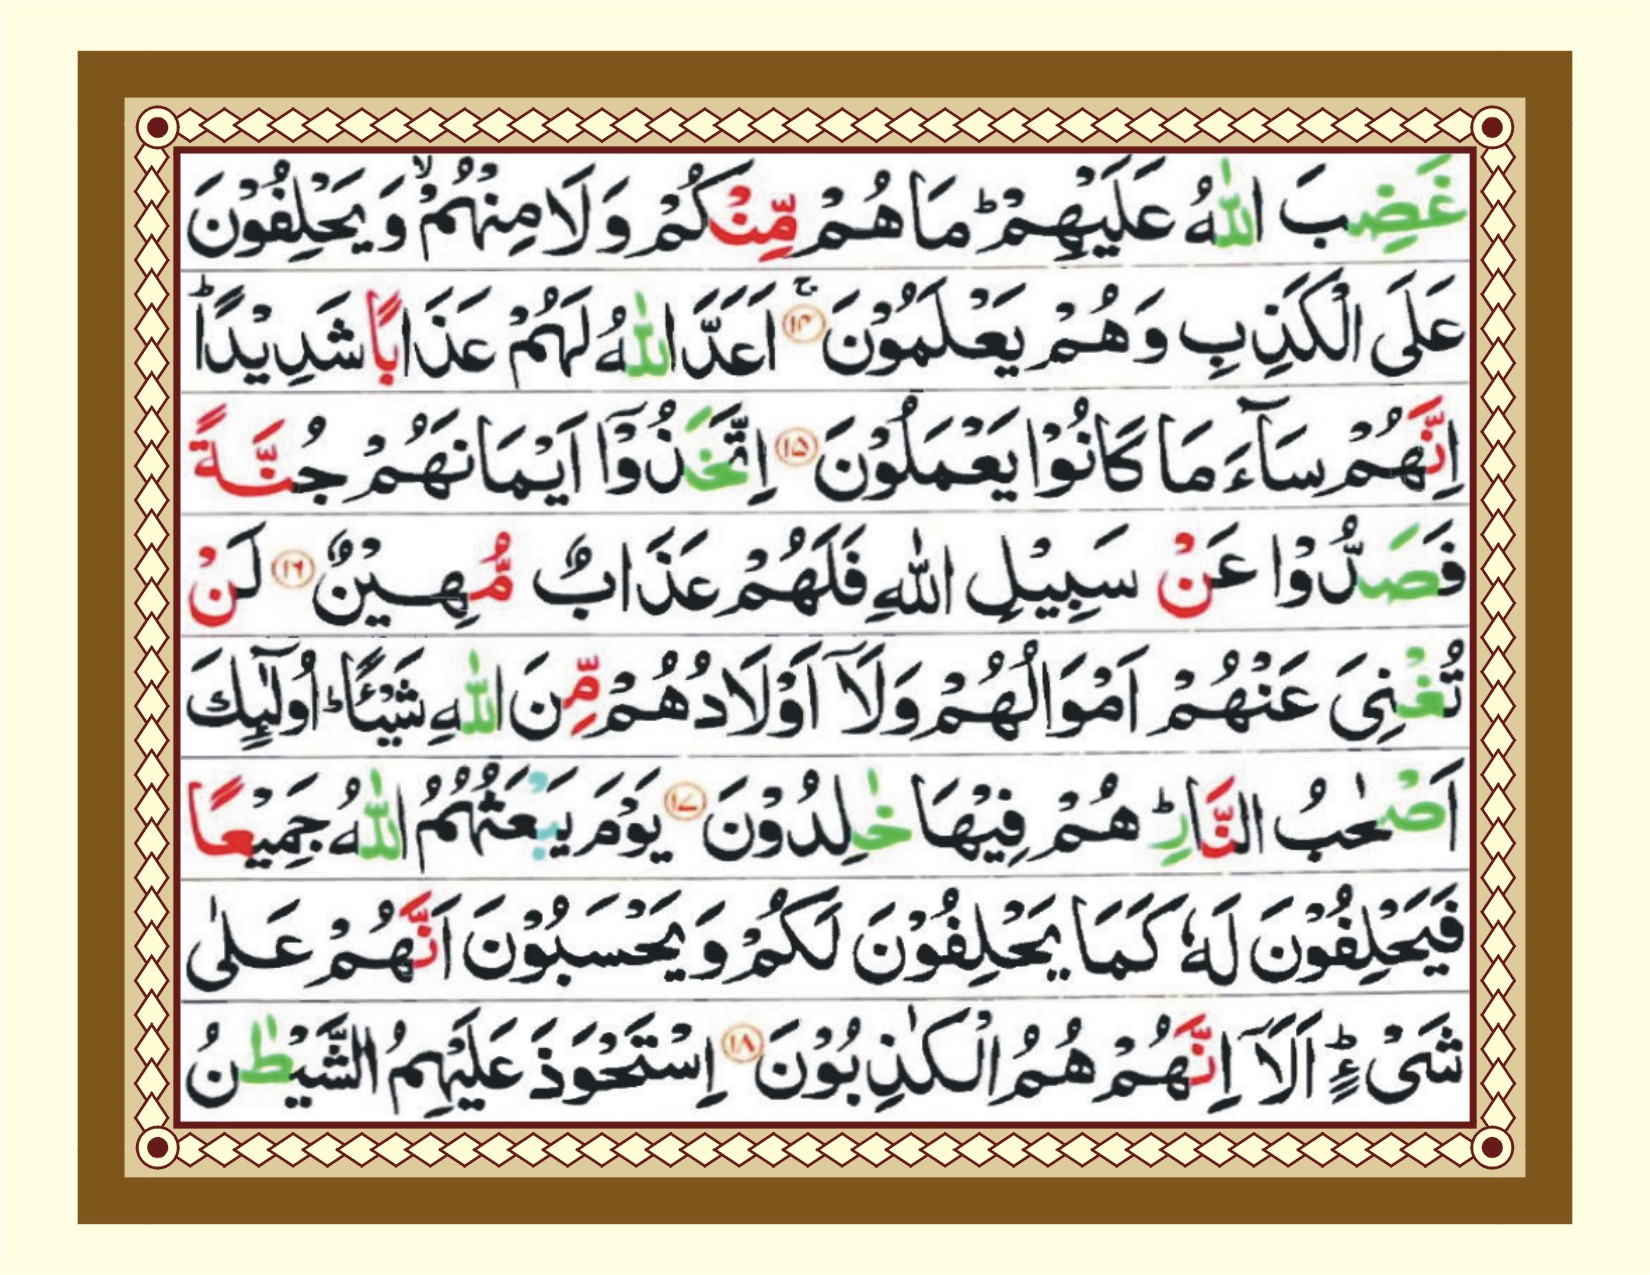 غَضِبَ اللّٰهُ عَلَيْهِمْ ؕ مَا هُمْ مِّنْكُمْ وَلَا مِنْهُمْ ۙ وَيَحْلِفُوْنَ
عَلَى الْكَذِبِ وَهُمْ يَعْلَمُوْنَ ۚ ﴿۱۴﴾ اَعَدَّ اللّٰهُ لَهُمْ عَذَابًا شَدِيْدًا ؕ
اِنَّهُمْ سَآءَ مَا كَانُوْا يَعْمَلُوْنَ ﴿۱۵﴾ اِتَّخَذُوْۤا اَيْمَانَهُمْ جُنَّةً
فَصَدُّوْا عَنْ سَبِيْلِ اللّٰهِ فَلَهُمْ عَذَابٌ مُّهِيْنٌ ﴿۱۶﴾ لَنْ
تُغْنِىَ عَنْهُمْ اَمْوَالُهُمْ وَلَاۤ اَوْلَادُهُمْ مِّنَ اللّٰهِ شَيْـًٔا ؕ اُولٰٓٮِٕكَ
اَصْحٰبُ النَّارِ ؕ هُمْ فِيْهَا خٰلِدُوْنَ ﴿۱۷﴾ يَوْمَ يَبْعَثُهُمُ اللّٰهُ جَمِيْعًا
فَيَحْلِفُوْنَ لَهٗ كَمَا يَحْلِفُوْنَ لَكُمْ وَيَحْسَبُوْنَ اَنَّهُمْ عَلٰى
شَىْءٍ ؕ اَلَاۤ اِنَّهُمْ هُمُ الْكٰذِبُوْنَ ﴿۱۸﴾ اِسْتَحْوَذَ عَلَيْهِمُ الشَّيْطٰنُ